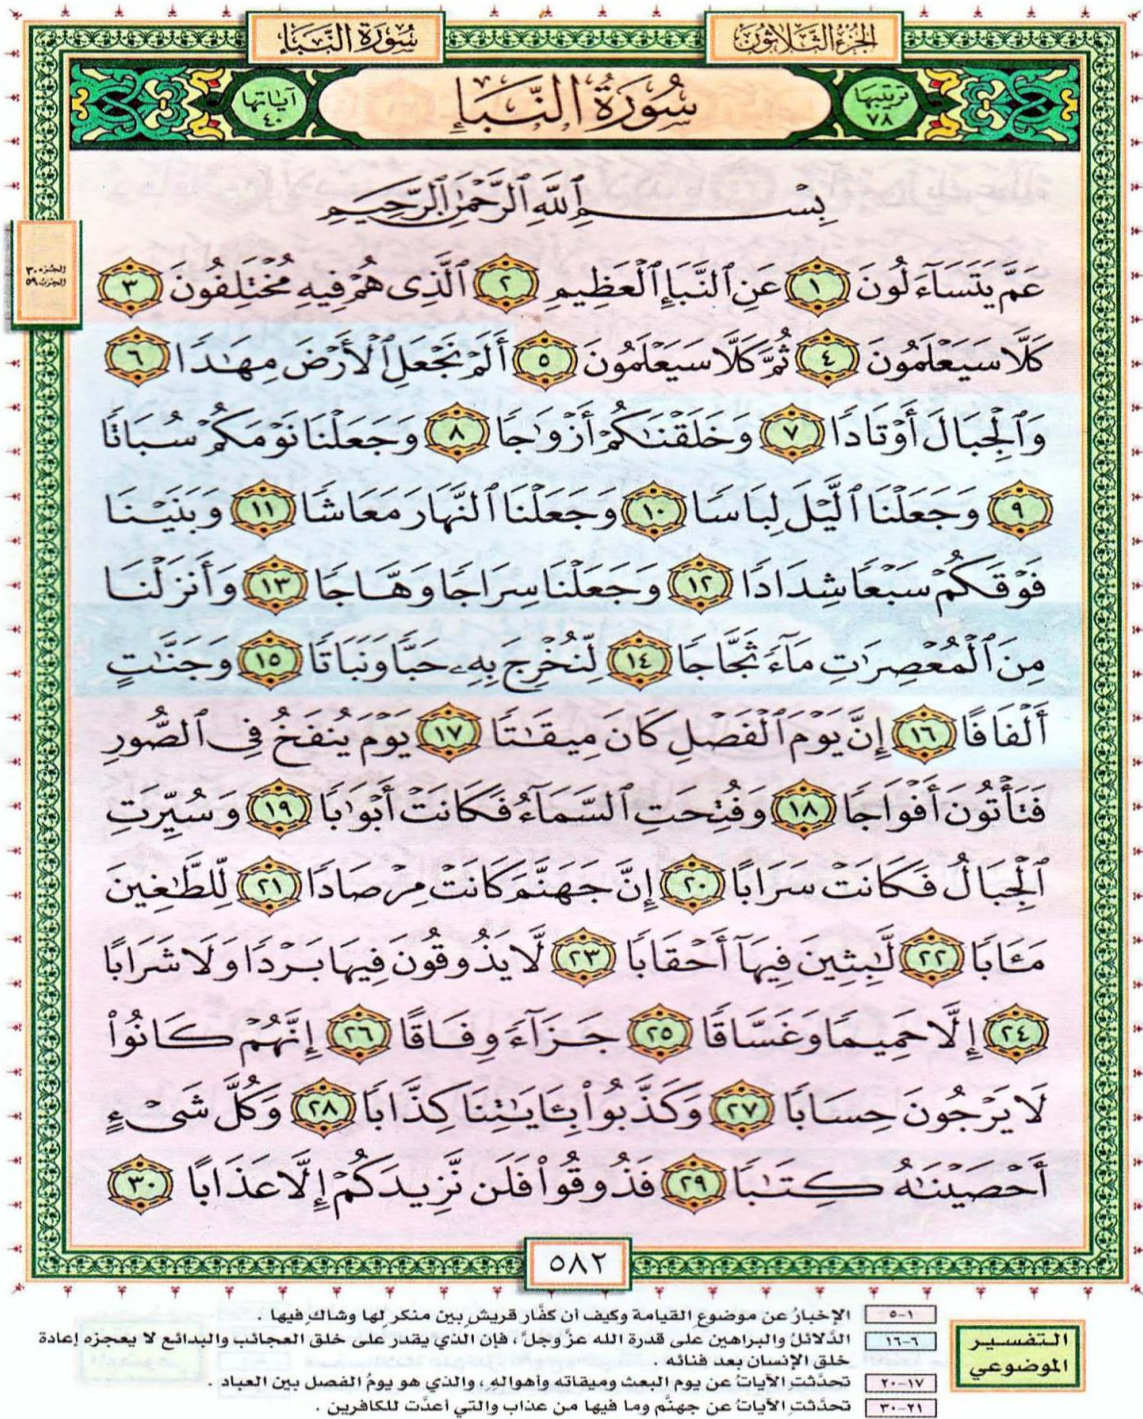 الجزء الثلاثون
سورة النبإ
ترتيبها ٧٨
سُورَةُ النَّبَإِ
آياتها ٤٠
بِسْمِ ٱللَّهِ ٱلرَّحْمَٰنِ ٱلرَّحِيمِ
الجزء ٣٠
الحزب ٥٩
عَمَّ يَتَسَآءَلُونَ ١ عَنِ ٱلنَّبَإِ ٱلْعَظِيمِ ٢ ٱلَّذِى هُمْ فِيهِ مُخْتَلِفُونَ ٣
كَلَّا سَيَعْلَمُونَ ٤ ثُمَّ كَلَّا سَيَعْلَمُونَ ٥ أَلَمْ نَجْعَلِ ٱلْأَرْضَ مِهَٰدًا ٦
وَٱلْجِبَالَ أَوْتَادًا ٧ وَخَلَقْنَٰكُمْ أَزْوَٰجًا ٨ وَجَعَلْنَا نَوْمَكُمْ سُبَاتًا
٩ وَجَعَلْنَا ٱلَّيْلَ لِبَاسًا ١٠ وَجَعَلْنَا ٱلنَّهَارَ مَعَاشًا ١١ وَبَنَيْنَا
فَوْقَكُمْ سَبْعًا شِدَادًا ١٢ وَجَعَلْنَا سِرَاجًا وَهَّاجًا ١٣ وَأَنزَلْنَا
مِنَ ٱلْمُعْصِرَٰتِ مَآءً ثَجَّاجًا ١٤ لِّنُخْرِجَ بِهِۦ حَبًّا وَنَبَاتًا ١٥ وَجَنَّٰتٍ
أَلْفَافًا ١٦ إِنَّ يَوْمَ ٱلْفَصْلِ كَانَ مِيقَٰتًا ١٧ يَوْمَ يُنفَخُ فِى ٱلصُّورِ
فَتَأْتُونَ أَفْوَاجًا ١٨ وَفُتِحَتِ ٱلسَّمَآءُ فَكَانَتْ أَبْوَٰبًا ١٩ وَسُيِّرَتِ
ٱلْجِبَالُ فَكَانَتْ سَرَابًا ٢٠ إِنَّ جَهَنَّمَ كَانَتْ مِرْصَادًا ٢١ لِّلطَّٰغِينَ
مَـَٔابًا ٢٢ لَّٰبِثِينَ فِيهَآ أَحْقَابًا ٢٣ لَّا يَذُوقُونَ فِيهَا بَرْدًا وَلَا شَرَابًا
٢٤ إِلَّا حَمِيمًا وَغَسَّاقًا ٢٥ جَزَآءً وِفَاقًا ٢٦ إِنَّهُمْ كَانُوا۟
لَا يَرْجُونَ حِسَابًا ٢٧ وَكَذَّبُوا۟ بِـَٔايَٰتِنَا كِذَّابًا ٢٨ وَكُلَّ شَىْءٍ
أَحْصَيْنَٰهُ كِتَٰبًا ٢٩ فَذُوقُوا۟ فَلَن نَّزِيدَكُمْ إِلَّا عَذَابًا ٣٠
٥٨٢
التفسير
الموضوعي
١-٥ الإخبارُ عن موضوع القيامة وكيف أن كفَّار قريش بين منكر لها وشاك فيها .
٦-١٦ الدَّلائلُ والبراهين على قدرة الله عزَّ وجلَّ، فإن الذي يقدر على خلق العجائب والبدائع لا يعجزه إعادة
خلق الإنسان بعد فنائه .
١٧-٢٠ تحدَّثت الآياتُ عن يوم البعث وميقاته وأهواله ، والذي هو يومُ الفصل بين العباد .
٢١-٣٠ تحدَّثت الآياتُ عن جهنَّم وما فيها من عذاب والتي أعدَّت للكافرين .